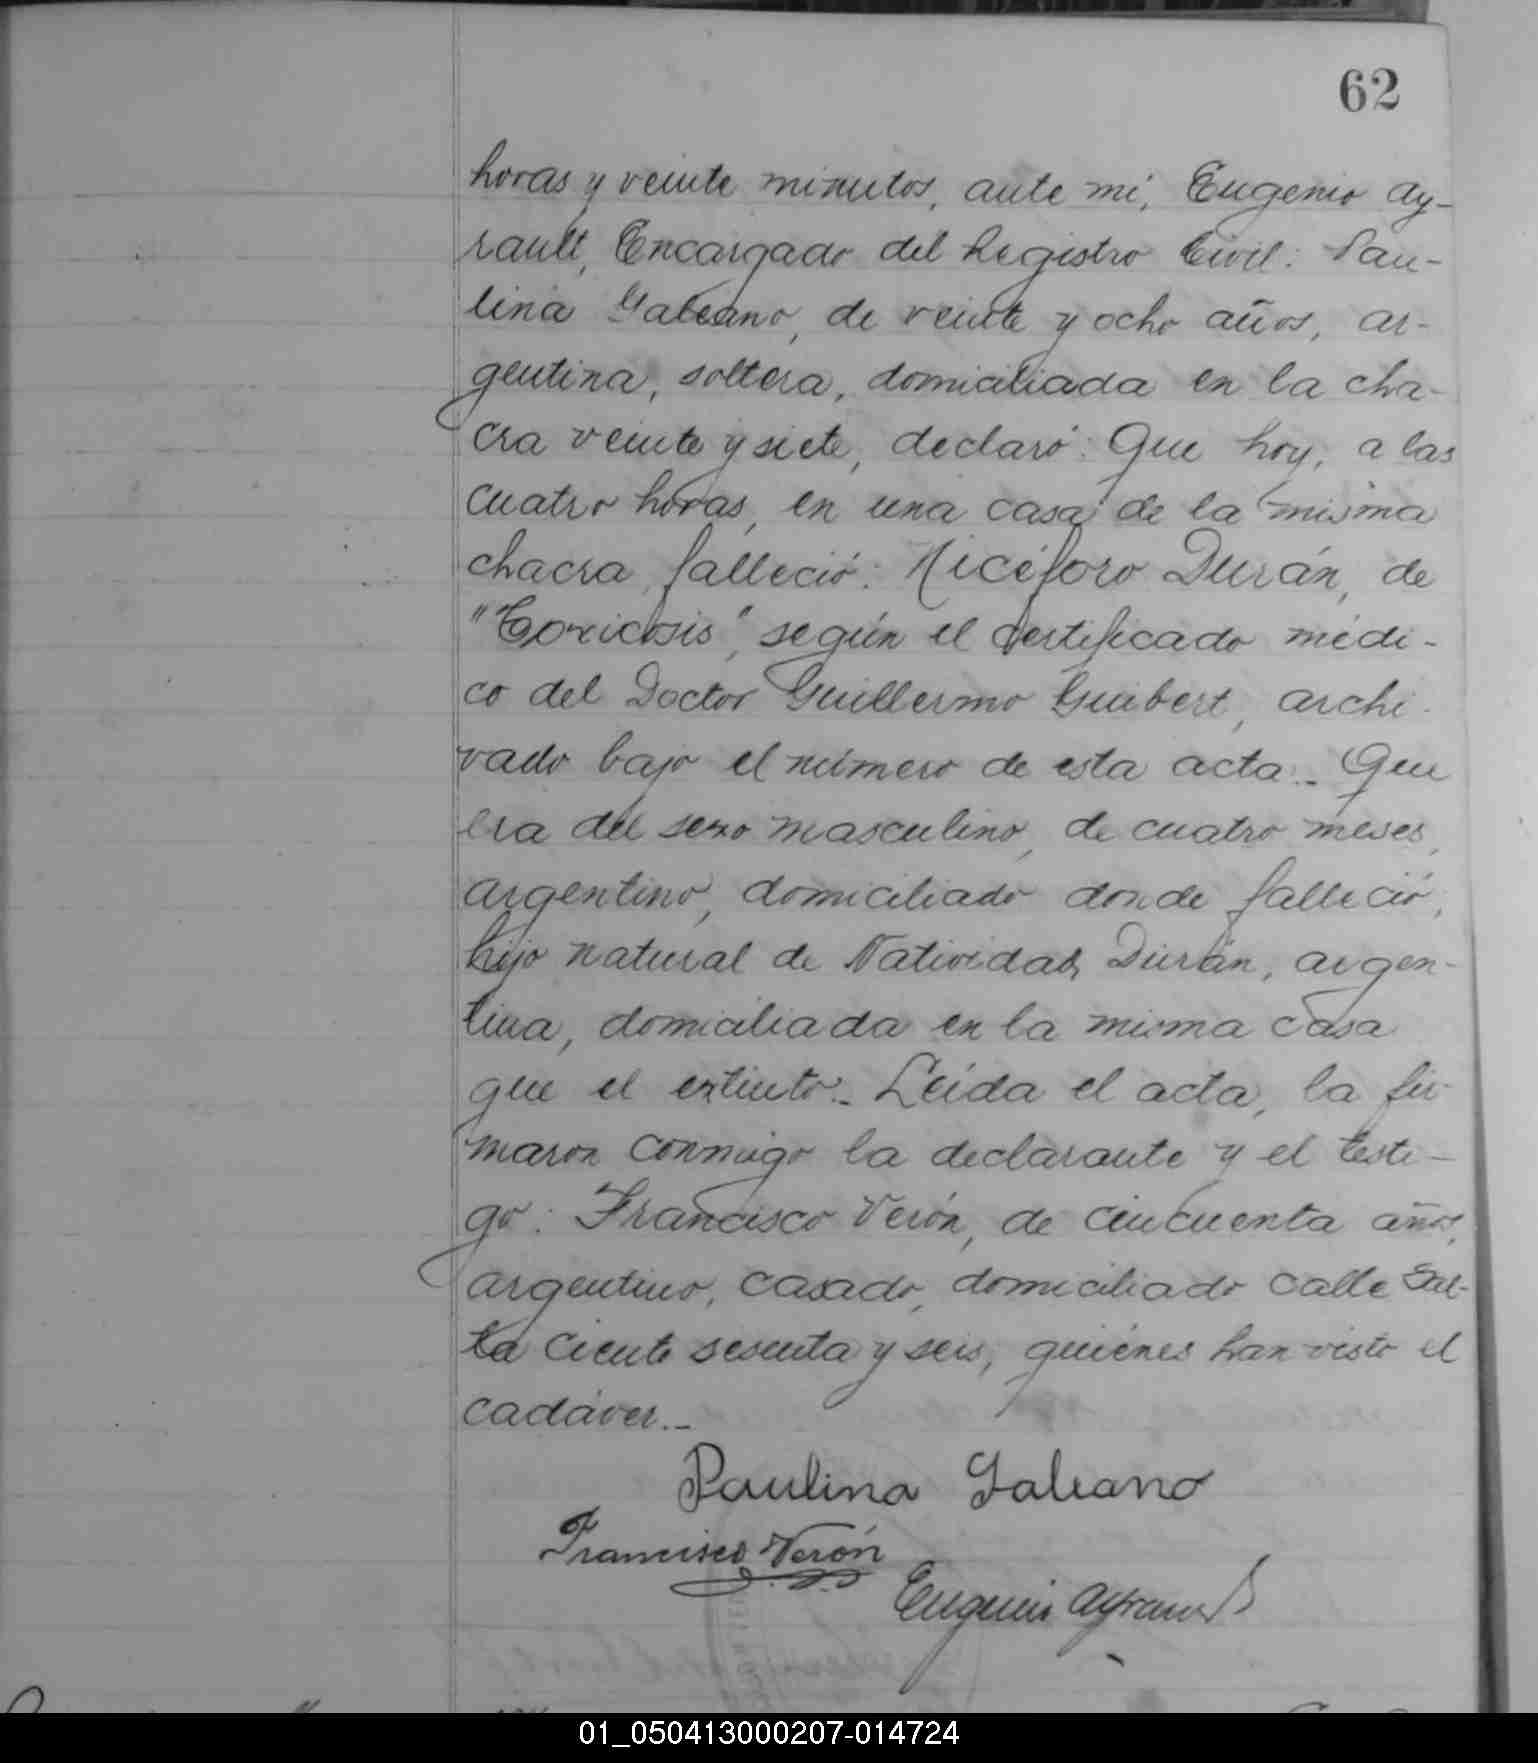 62
horas y veinte minutos, ante mí, Eugenio Ay-
rault, Encargado del Registro Civil: Pau-
lina Galeano, de veinte y ocho años, ar-
gentina, soltera, domiciliada en la cha-
cra veinte y siete, declaró: Que hoy, a las
cuatro horas, en una casa de la misma
chacra, falleció: Nicéforo Durán, de
"Toxicosis", según el certificado médi-
co del Doctor Guillermo Guibert, archi-
vado bajo el número de esta acta._ Que
era del sexo masculino, de cuatro meses,
argentino, domiciliado donde falleció,
hijo natural de Natividad Durán, argen-
tina, domiciliada en la misma casa
que el extinto._ Leída el acta, la fir-
maron conmigo la declarante y el testi-
go: Francisco Verón, de cincuenta años,
argentino, casado, domiciliado calle Sal-
ta ciento sesenta y seis, quiénes han visto el
cadáver._
Paulina Galeano
Francisco Verón
Eugenio Ayrault
01_050413000207-014724